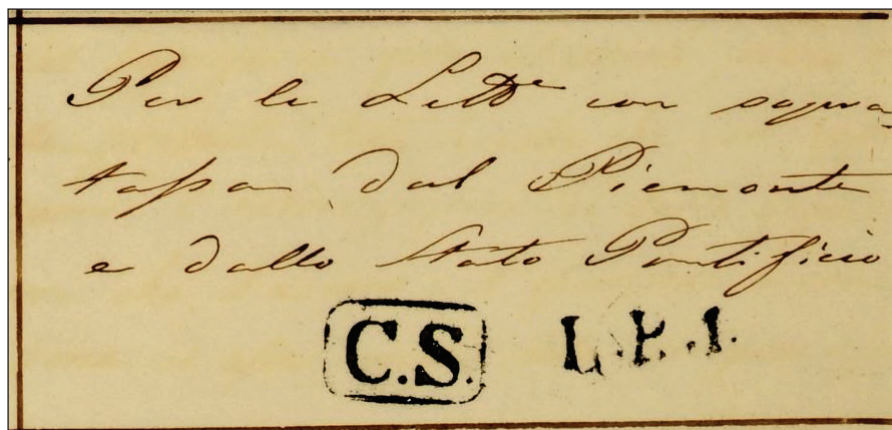 Per le Lett.e con sopra-
tassa dal Piemonte
e dallo Stato Pontificio
C.S. L.P.I.